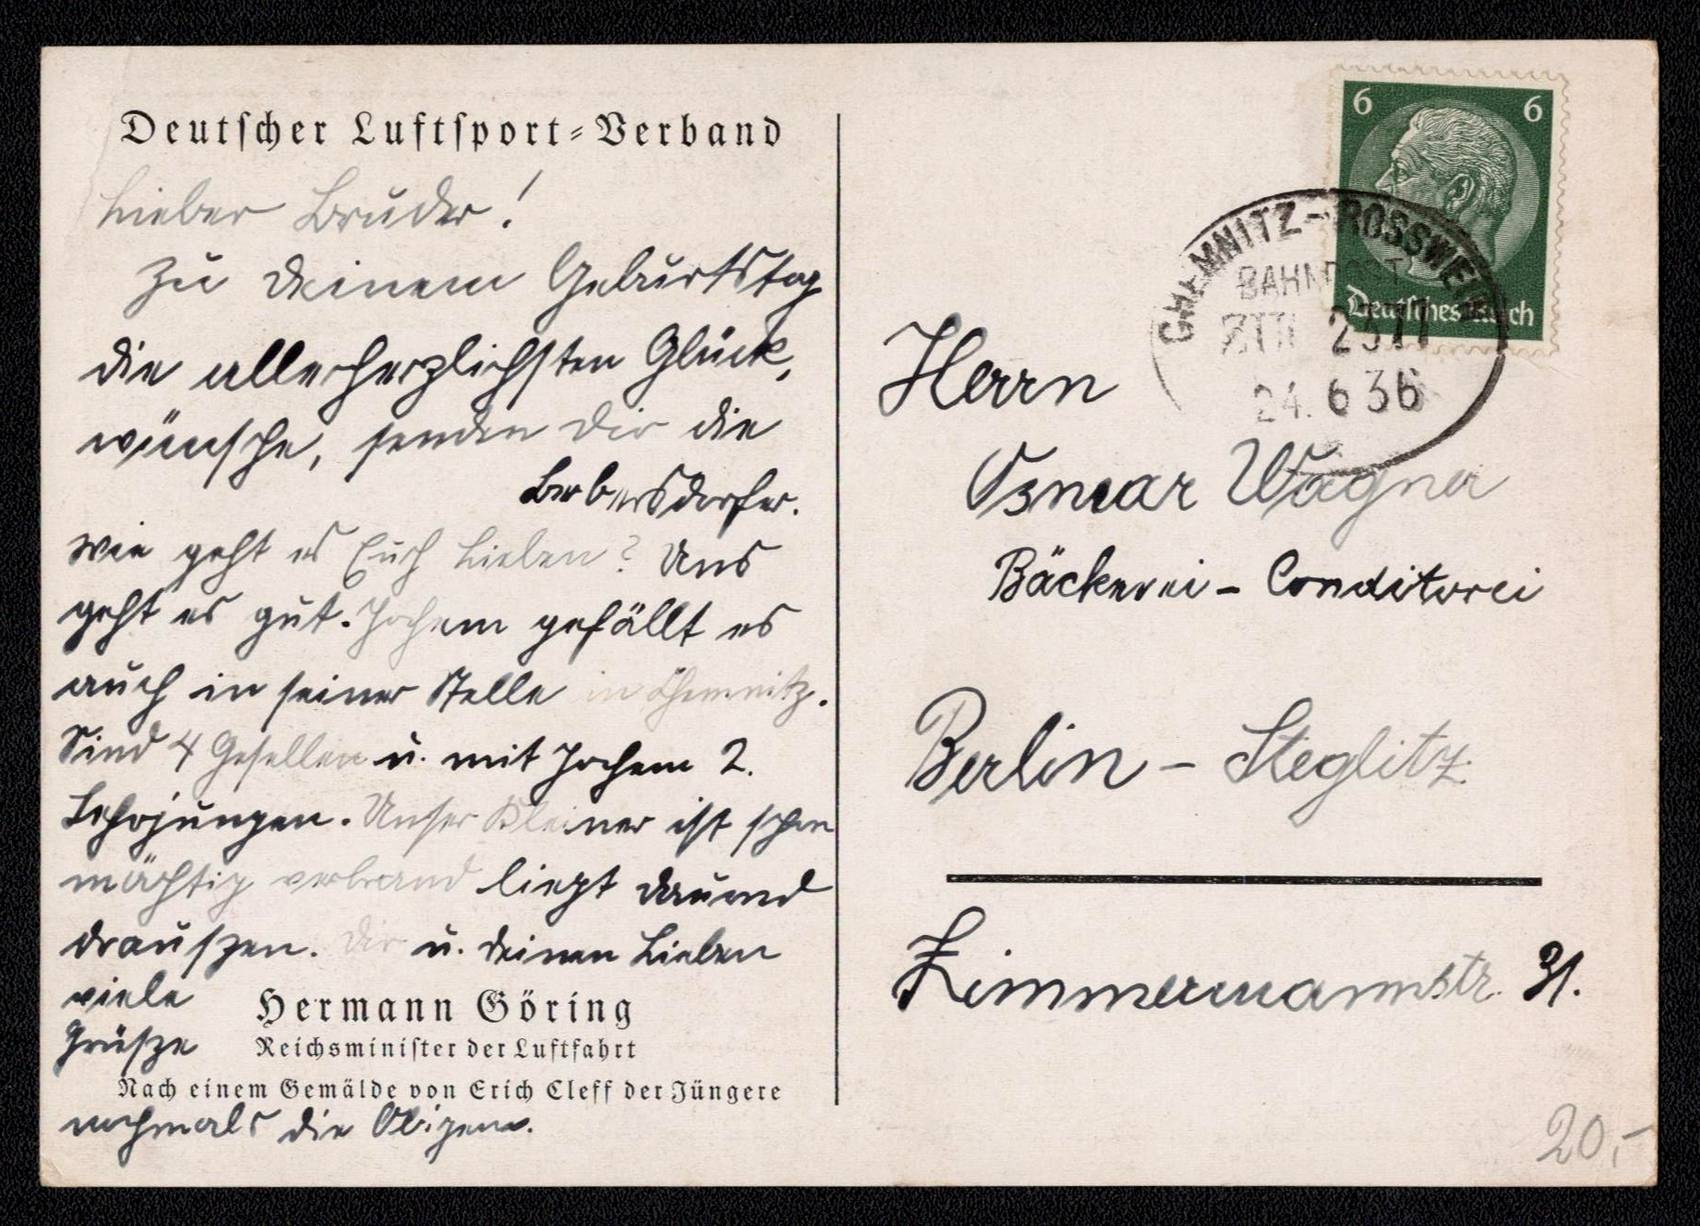 Deutscher Luftsport-Verband
Lieber Bruder!
Zu Deinem Geburtstag
die allerherzlichsten Glück,
wünsche, senden Dir die
Berbersdorfer.
Wie geht es Euch Lieben? Uns
geht es gut. Jochem gefällt es
auch in seiner Stelle in Chemnitz.
Sind 4 Gesellen u. mit Jochem 2.
Lehrjungen. Unser Kleiner ist schon
mächtig verbrand liegt dauernd
drauszen. Dir u. deinen Lieben
viele
Grüsze
nochmals die Obigen.
Hermann Göring
Reichsminister der Luftfahrt
Nach einem Gemälde von Erich Cleff der Jüngere
6 6
Deutsches Reich
CHEMNITZ-ROSSWEIN
BAHNPOST
24.6 36
Herrn
Osmar Wagner
Bäckerei - Conditorei
Berlin - Steglitz
Zimmermannstr. 31.
20,-